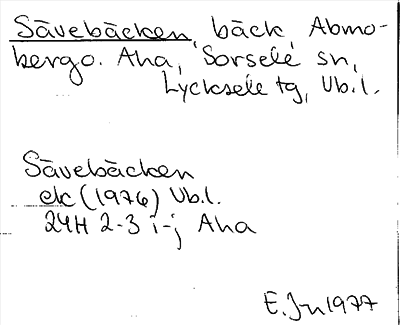 Sävebäcken, bäck, Abmo-
bergo. Aha, Sorsele sn,
Lycksele tg, Vb.l.
Sävebäcken
ek (1976) Vb.l.
24H 2-3 i-j Aha
E. Jn 1977